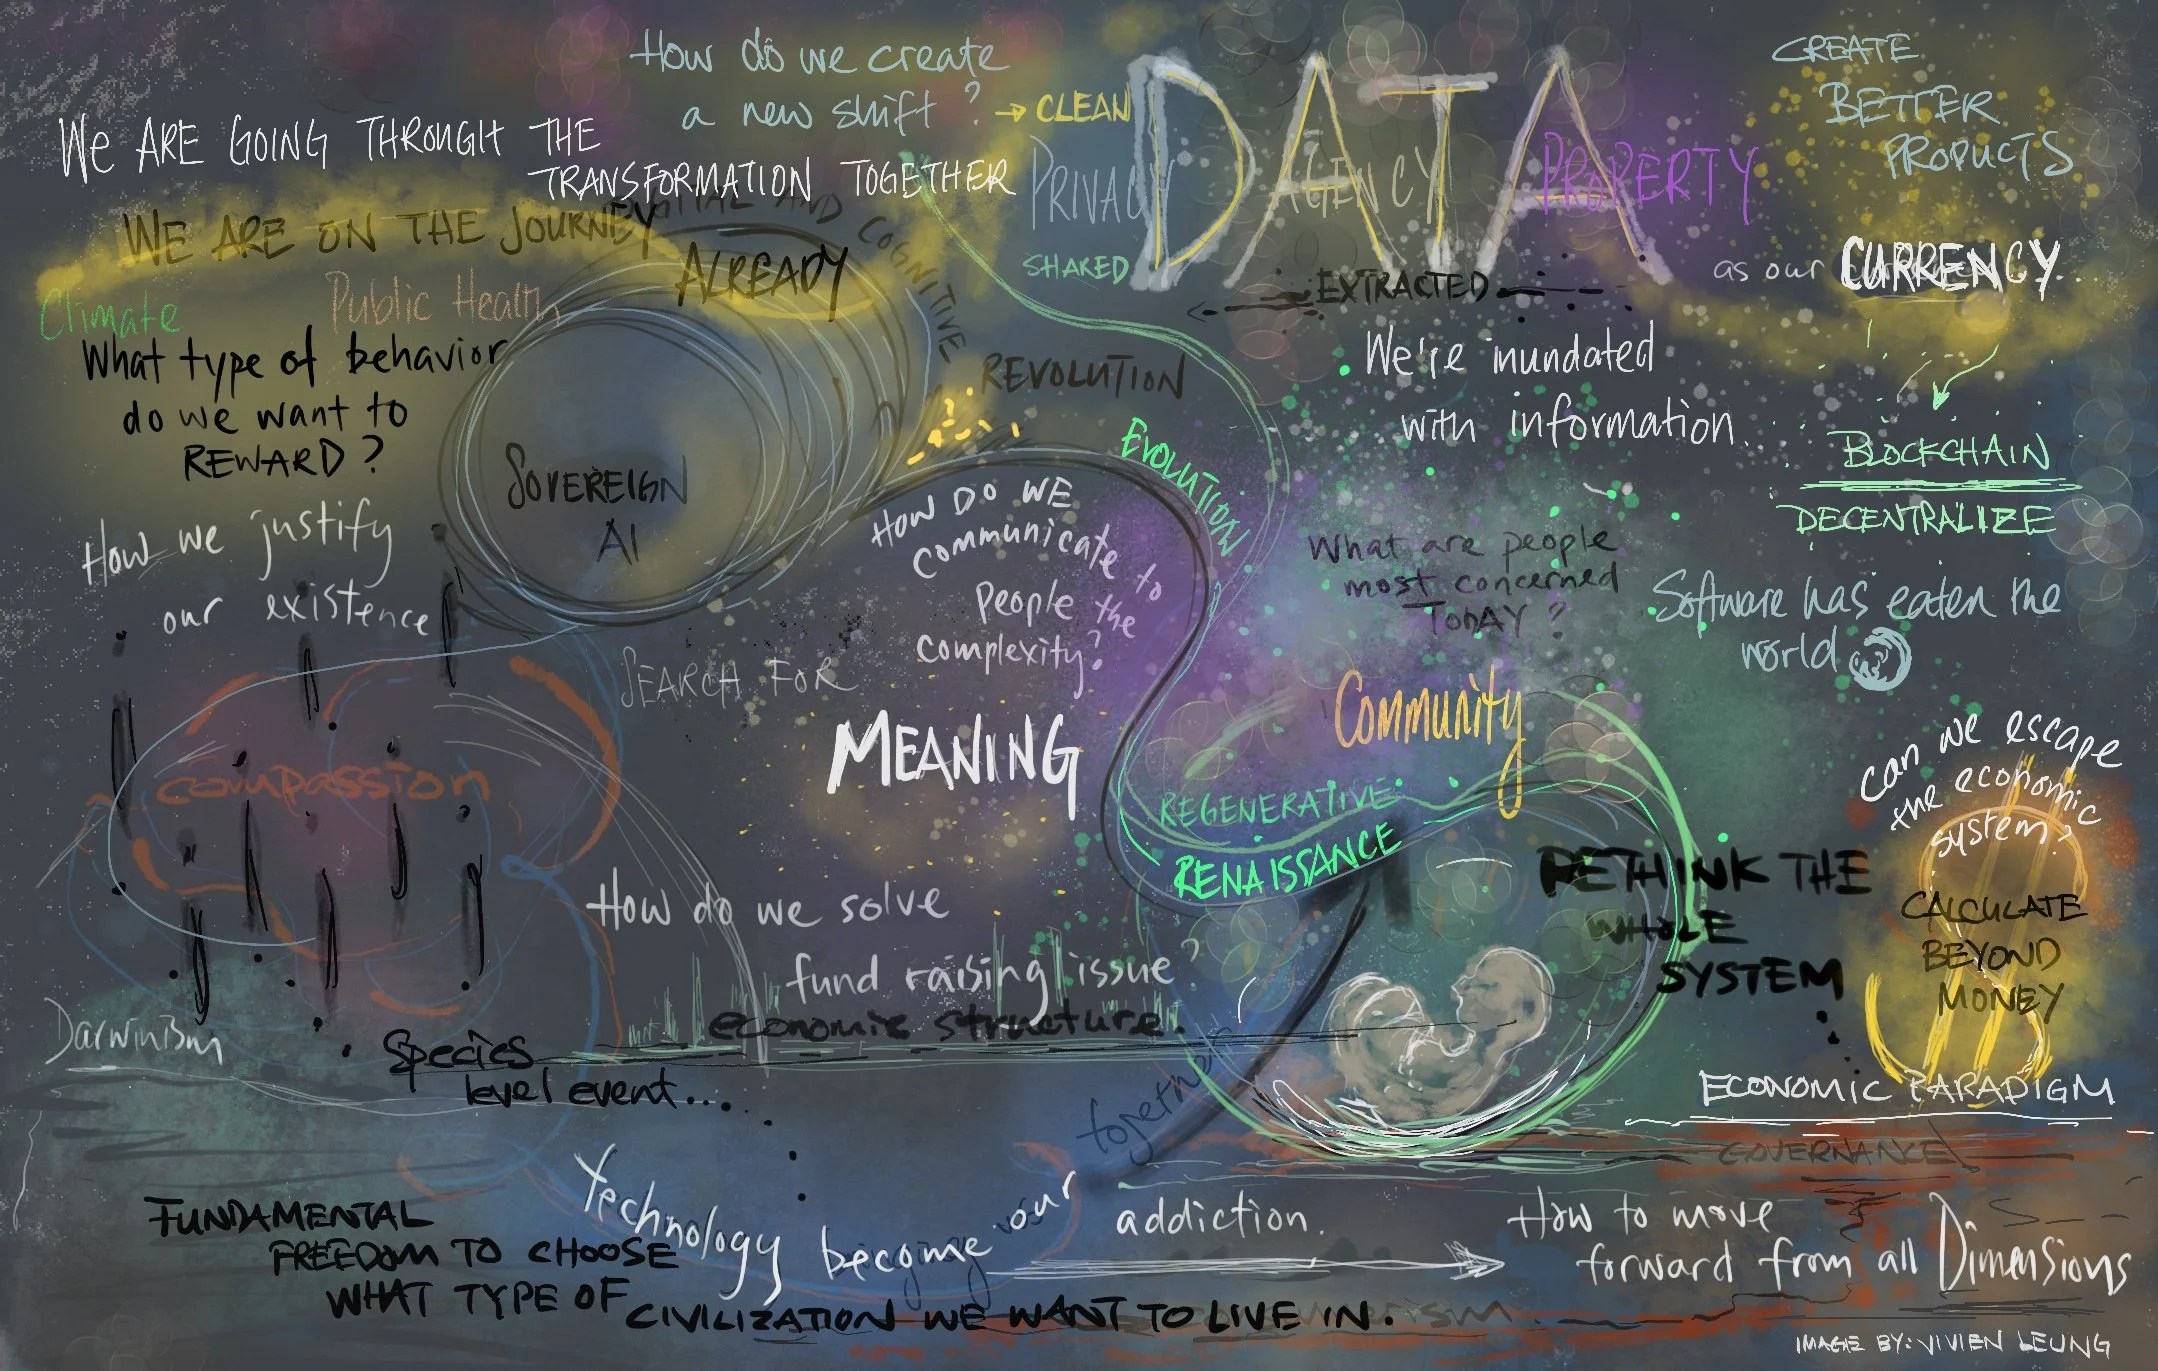 How do we create
a new shift?
→ CLEAN
DATA
PRIVACY
AGENCY
PROPERTY
SHARED
EXTRACTED
CREATE
BETTER
PRODUCTS
as our CURRENCY
WE ARE GOING THROUGH THE
TRANSFORMATION TOGETHER
WE ARE ON THE JOURNEY
ALREADY
AND COGNITIVE
REVOLUTION
EVOLUTION
Climate
Public Health
What type of behavior
do we want to
REWARD?
SOVEREIGN
AI
We're inundated
with information.
BLOCKCHAIN
DECENTRALIZE
How we justify
our existence
HOW DO WE
communicate to
people the
complexity?
What are people
most concerned
TODAY?
Software has eaten the
world
SEARCH FOR
MEANING
Community
compassion
REGENERATIVE
RENAISSANCE
can we escape
the economic
system?
RETHINK THE
WHOLE
SYSTEM
CALCULATE
BEYOND
MONEY
How do we solve
fund raising issue?
economic structure.
Darwinism
Species
level event...
together
ECONOMIC PARADIGM
GOVERNANCE
Technology become our addiction.
How to move
forward from all Dimensions
FUNDAMENTAL
FREEDOM TO CHOOSE
WHAT TYPE OF
CIVILIZATION WE WANT TO LIVE IN.
IMAGE BY: VIVIEN LEUNG